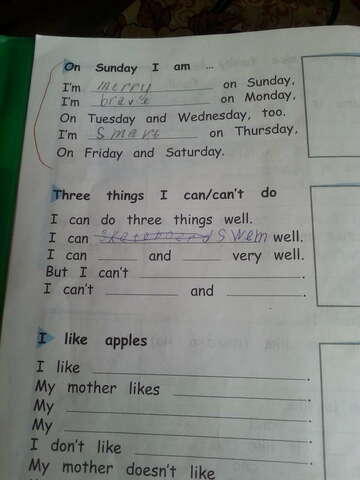 On Sunday I am ...
I'm merry on Sunday,
I'm brave on Monday,
On Tuesday and Wednesday, too.
I'm Smart on Thursday,
On Friday and Saturday.
Three things I can/can't do
I can do three things well.
I can skateboard Swem well.
I can ______ and ______ very well.
But I can't ______.
I can't ______ and ______.
I like apples
I like ______.
My mother likes ______.
My ______.
My ______.
I don't like ______.
My mother doesn't like